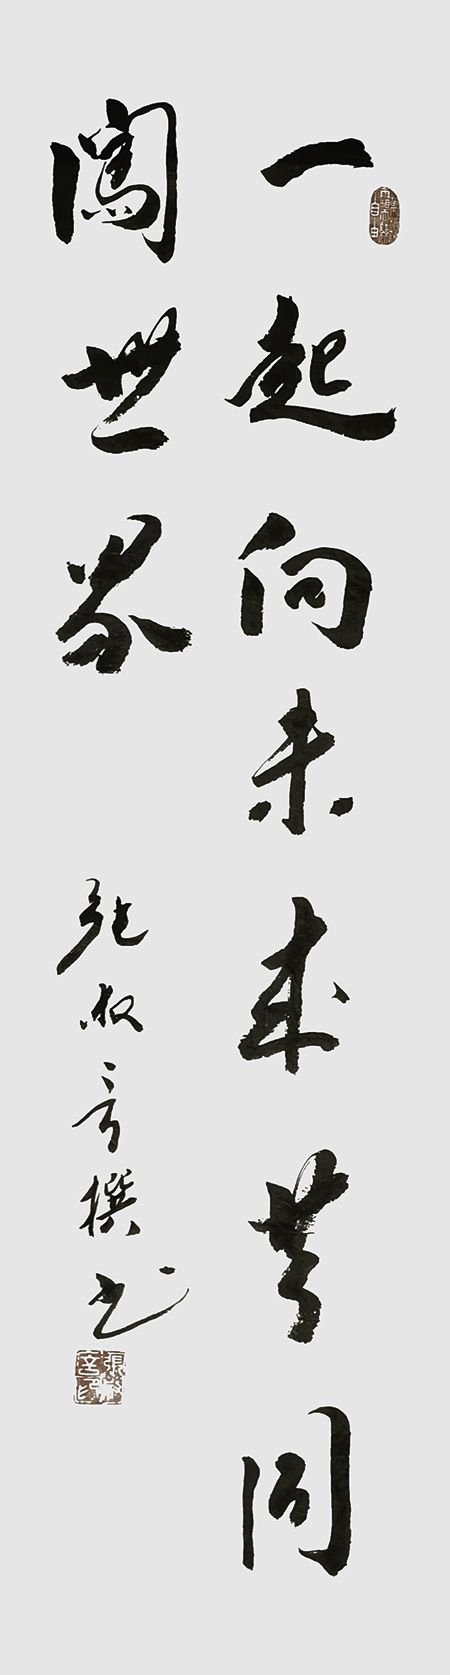 一起向未来共同
闖世界
张 撰书